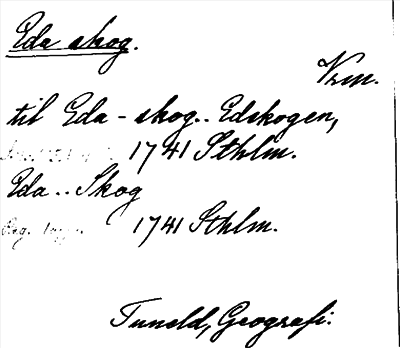 Eda skog.
Vrm.
til Eda-skog.. Edskogen,
1741 Sthlm.
Eda .. Skog
1741 Sthlm.
Tuneld, Geografi.